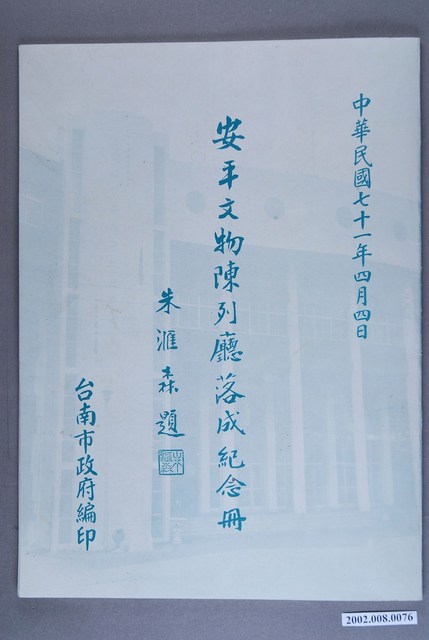 中華民國七十一年四月四日
安平文物陳列廳落成紀念冊
朱滙森題
台南市政府編印
2002.008.0076